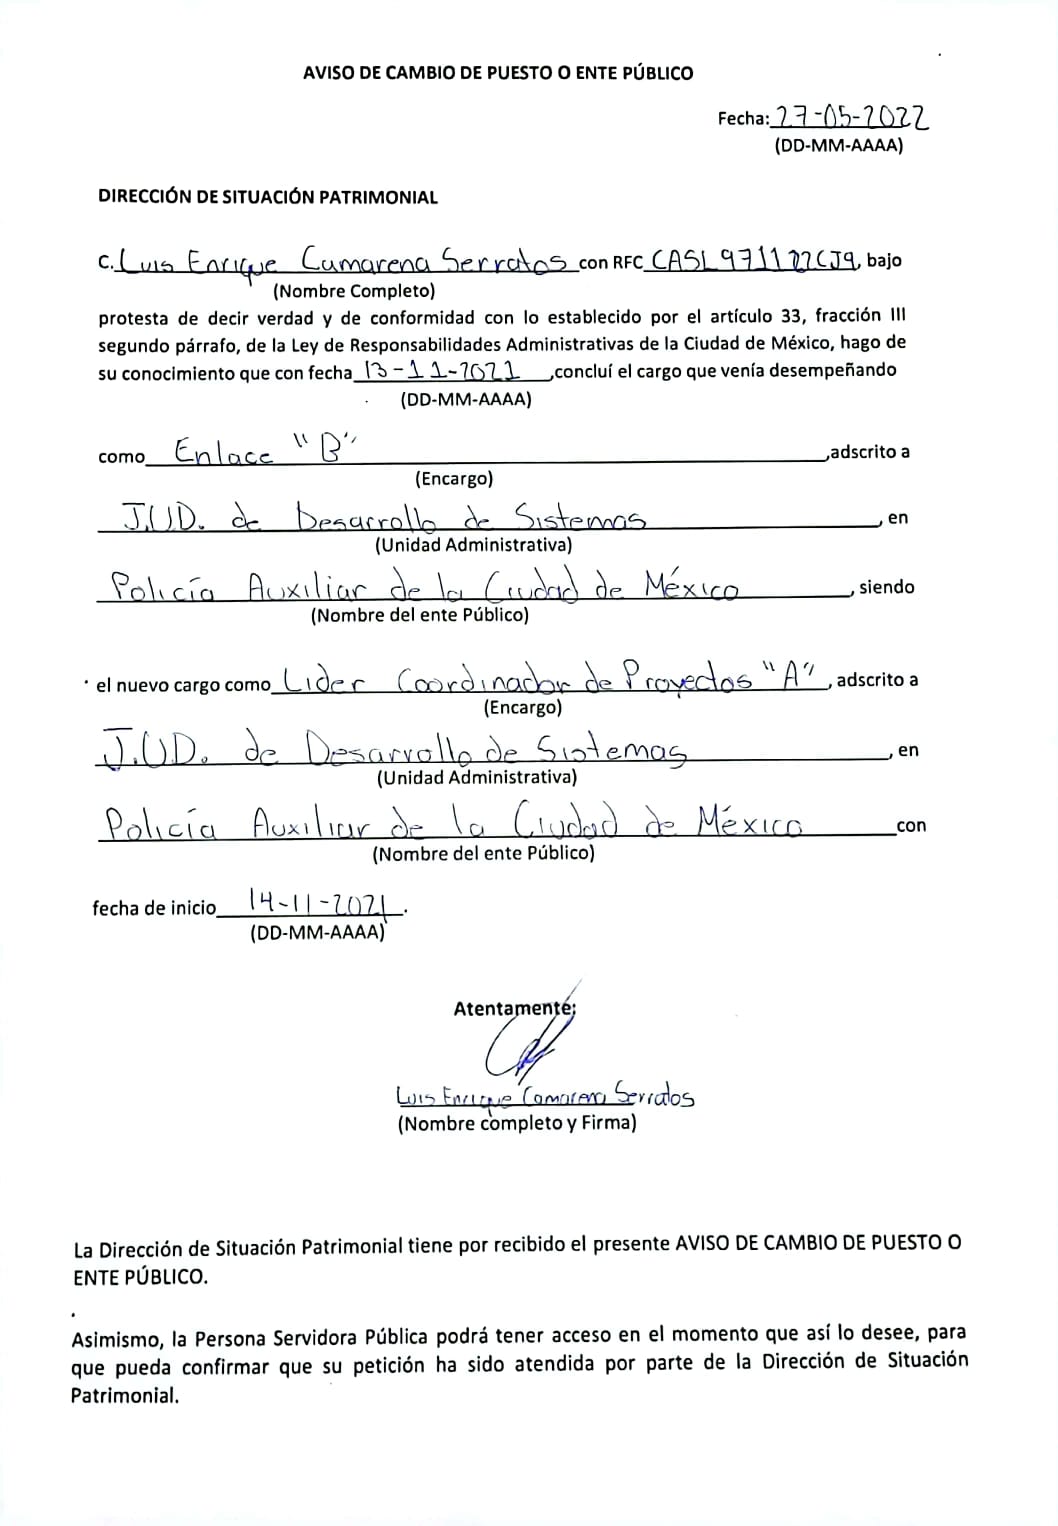 AVISO DE CAMBIO DE PUESTO O ENTE PÚBLICO
Fecha: 27-05-2022
(DD-MM-AAAA)
DIRECCIÓN DE SITUACIÓN PATRIMONIAL
C. Luis Enrique Camarena Serratos con RFC CASL971122CJ9, bajo
(Nombre Completo)
protesta de decir verdad y de conformidad con lo establecido por el artículo 33, fracción III
segundo párrafo, de la Ley de Responsabilidades Administrativas de la Ciudad de México, hago de
su conocimiento que con fecha 13-11-2021 ,concluí el cargo que venía desempeñando
(DD-MM-AAAA)
como Enlace "B" ,adscrito a
(Encargo)
J.U.D. de Desarrollo de Sistemas , en
(Unidad Administrativa)
Policía Auxiliar de la Ciudad de México , siendo
(Nombre del ente Público)
el nuevo cargo como Lider Coordinador de Proyectos "A" , adscrito a
(Encargo)
J.U.D. de Desarrollo de Sistemas , en
(Unidad Administrativa)
Policía Auxiliar de la Ciudad de México con
(Nombre del ente Público)
fecha de inicio 14-11-2021.
(DD-MM-AAAA)
Atentamente;
Luis Enrique Camarena Serratos
(Nombre completo y Firma)
La Dirección de Situación Patrimonial tiene por recibido el presente AVISO DE CAMBIO DE PUESTO O
ENTE PÚBLICO.
Asimismo, la Persona Servidora Pública podrá tener acceso en el momento que así lo desee, para
que pueda confirmar que su petición ha sido atendida por parte de la Dirección de Situación
Patrimonial.